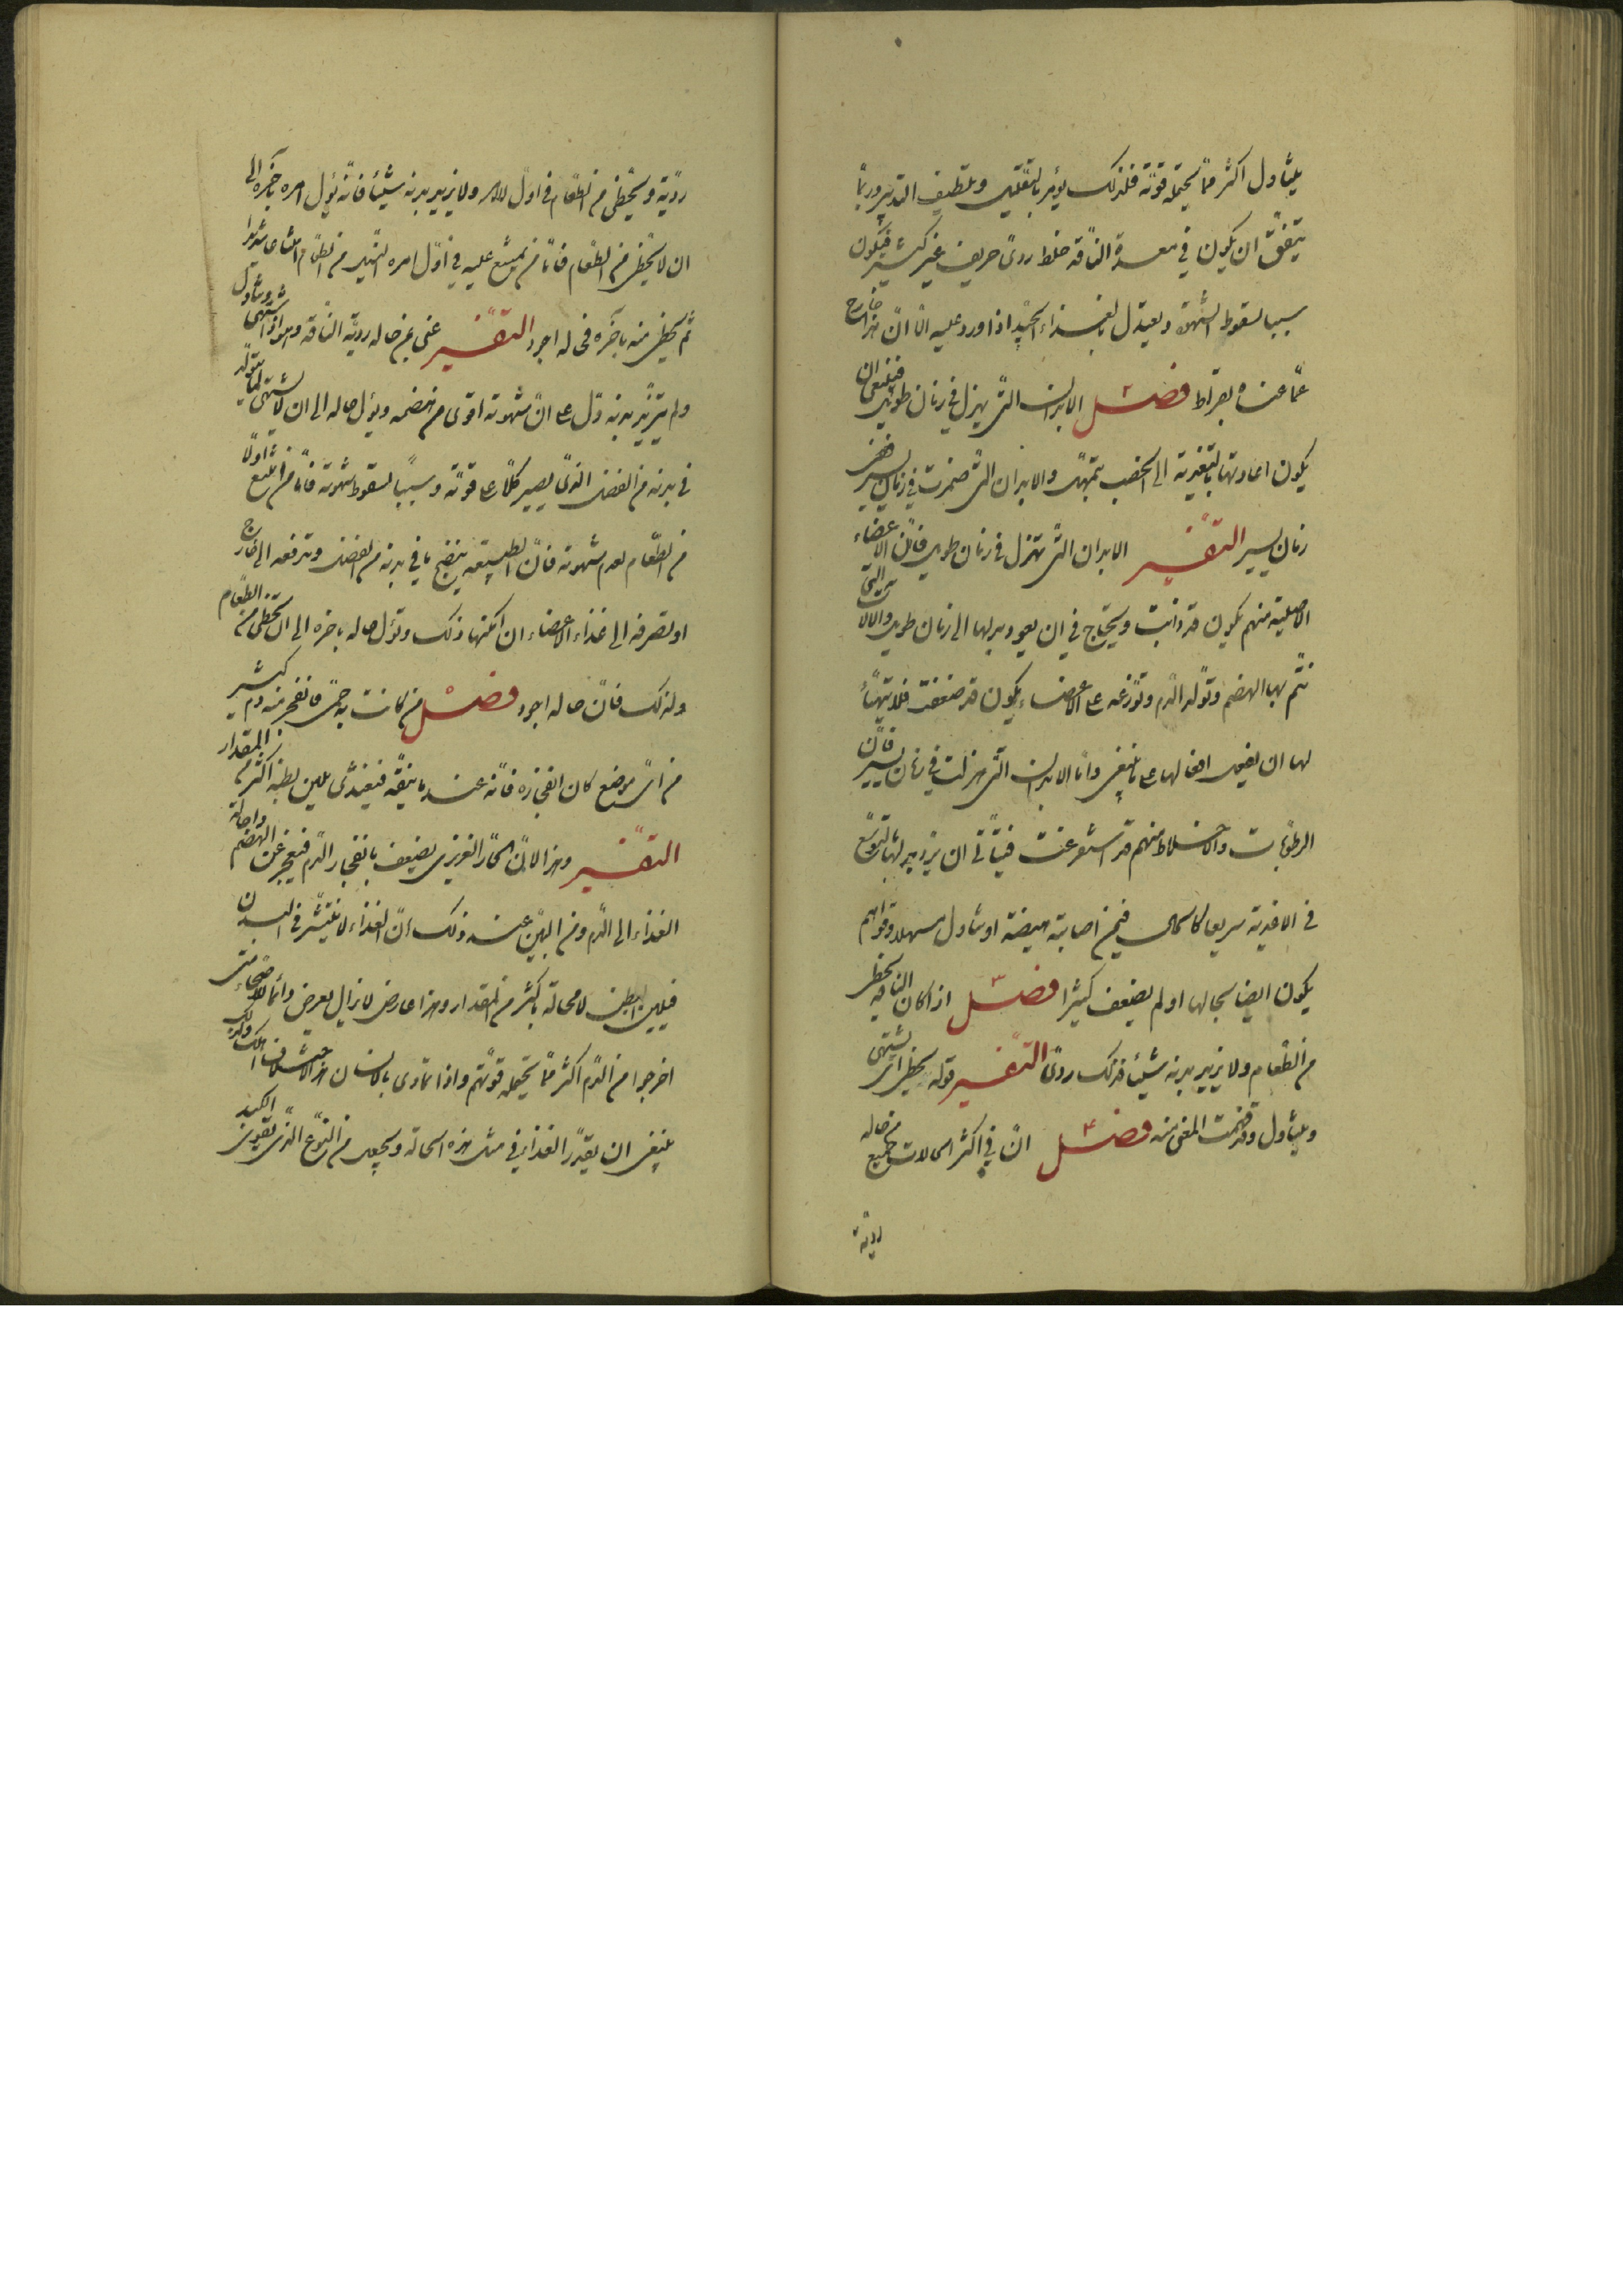 يتناول اكثر مما تحتمله قوته فلذلك يؤمر بالتقليل وبلطيف التدبير وربما
يتفق ان يكون في معدة الناقه خلط ردئ حريف غير كثير فيكون
سببا لسقوط الشهوة ويعتدل بالغذاء الجيد اذا ورد عليه الا ان هذا خارج
عما عناه بقراط فصل الابدان التي تهزل في زمان طويل فينبغي ان
يكون اعادتها بالتغذية الى الخصب بتمهل والابدان التي ضمرت في زمان يسير ففي
زمان يسير التفسير الابدان التي تهزل في زمان طويل فان الاعضاء
الاصلية منهم يكون قد ذابت ويحتاج في ان يعود بدلها الى زمان طويل والآلات التي
يتم بها الهضم وتولد الدم وتوزعه على الاعضاء يكون قد ضعفت فلا يتهيأ
لها ان يفعل افعالها على ما ينبغي واما الابدان التي هزلت في زمان يسير فان
الرطوبات والاخلاط منهم قد استفرغت فيتأتى ان يزيد بدلها بالتوسع
في الاغذية سريعا كالحال فيمن اصابته هيضة او تناول مسهلا وقواهم
يكون ايضا بحالها او لم يضعف كثيرا فصل اذا كان الناقه يحظى
من الطعام ولا يزيد بدنه شيئا فذلك ردئ التفسير قوله يحظى اي يشتهي
ويتناول وقد فهمت المعنى منه فصل ان في اكثر الحالات جميع من حاله
ردية
ردية ويحظى من الطعام في اول الامر ولا يزيد بدنه شيئا فانه يؤل امره بآخره الى
ان لا يحظى من الطعام فاما من يمتنع عليه في اول امره النيل من الطعام امتناعا شديدا
ثم يحظى منه بآخره فحاله اجود التفسير عنى بمن حاله ردية الناقه وهو اذا اشتهى وتناول
ولم يتزيد بدنه دل على ان شهوته اقوى من هضمه ويؤل حاله الى ان لا يشتهي لما يتولد
في بدنه من الفضل الذي يصير كلا على قوته وسببا لسقوط شهوته فاما من امتنع اولا
من الطعام لعدم شهوته فان الطبيعة ينضج ما في بدنه من الفضل وتدفعه الى خارج
او تصرفه الى غذاء الاعضاء ان امكنها ذلك ويؤل حاله بآخره الى ان يحظى من الطعام
ولذلك فان حاله اجود فصل من كانت به حمى فانفجر منه دم كثير
من اي موضع كان انفجاره فانه عند ما ينقه فيغتذي يلين بطنه اكثر من المقدار
التفسير وهذا لان الحار الغريزي يضعف بانفجار الدم فيعجز عن الهضم واحالة
الغذاء الى الدم ومن البين عند ذلك ان الغذاء لا ينتشر في البدن
فيلين البطن لا محالة باكثر من المقدار وهذا عارض لا يزال يعرض دائما للاصحاء متى
اخرجوا من الدم اكثر مما تحتمله قوتهم واذا تمادى بالانسان هذا الاختلاف اهلكه ولذلك
ينبغي ان يقدر الغذاء في مثل هذه الحالة ويجعل من النوع الذي يقوي الكبد